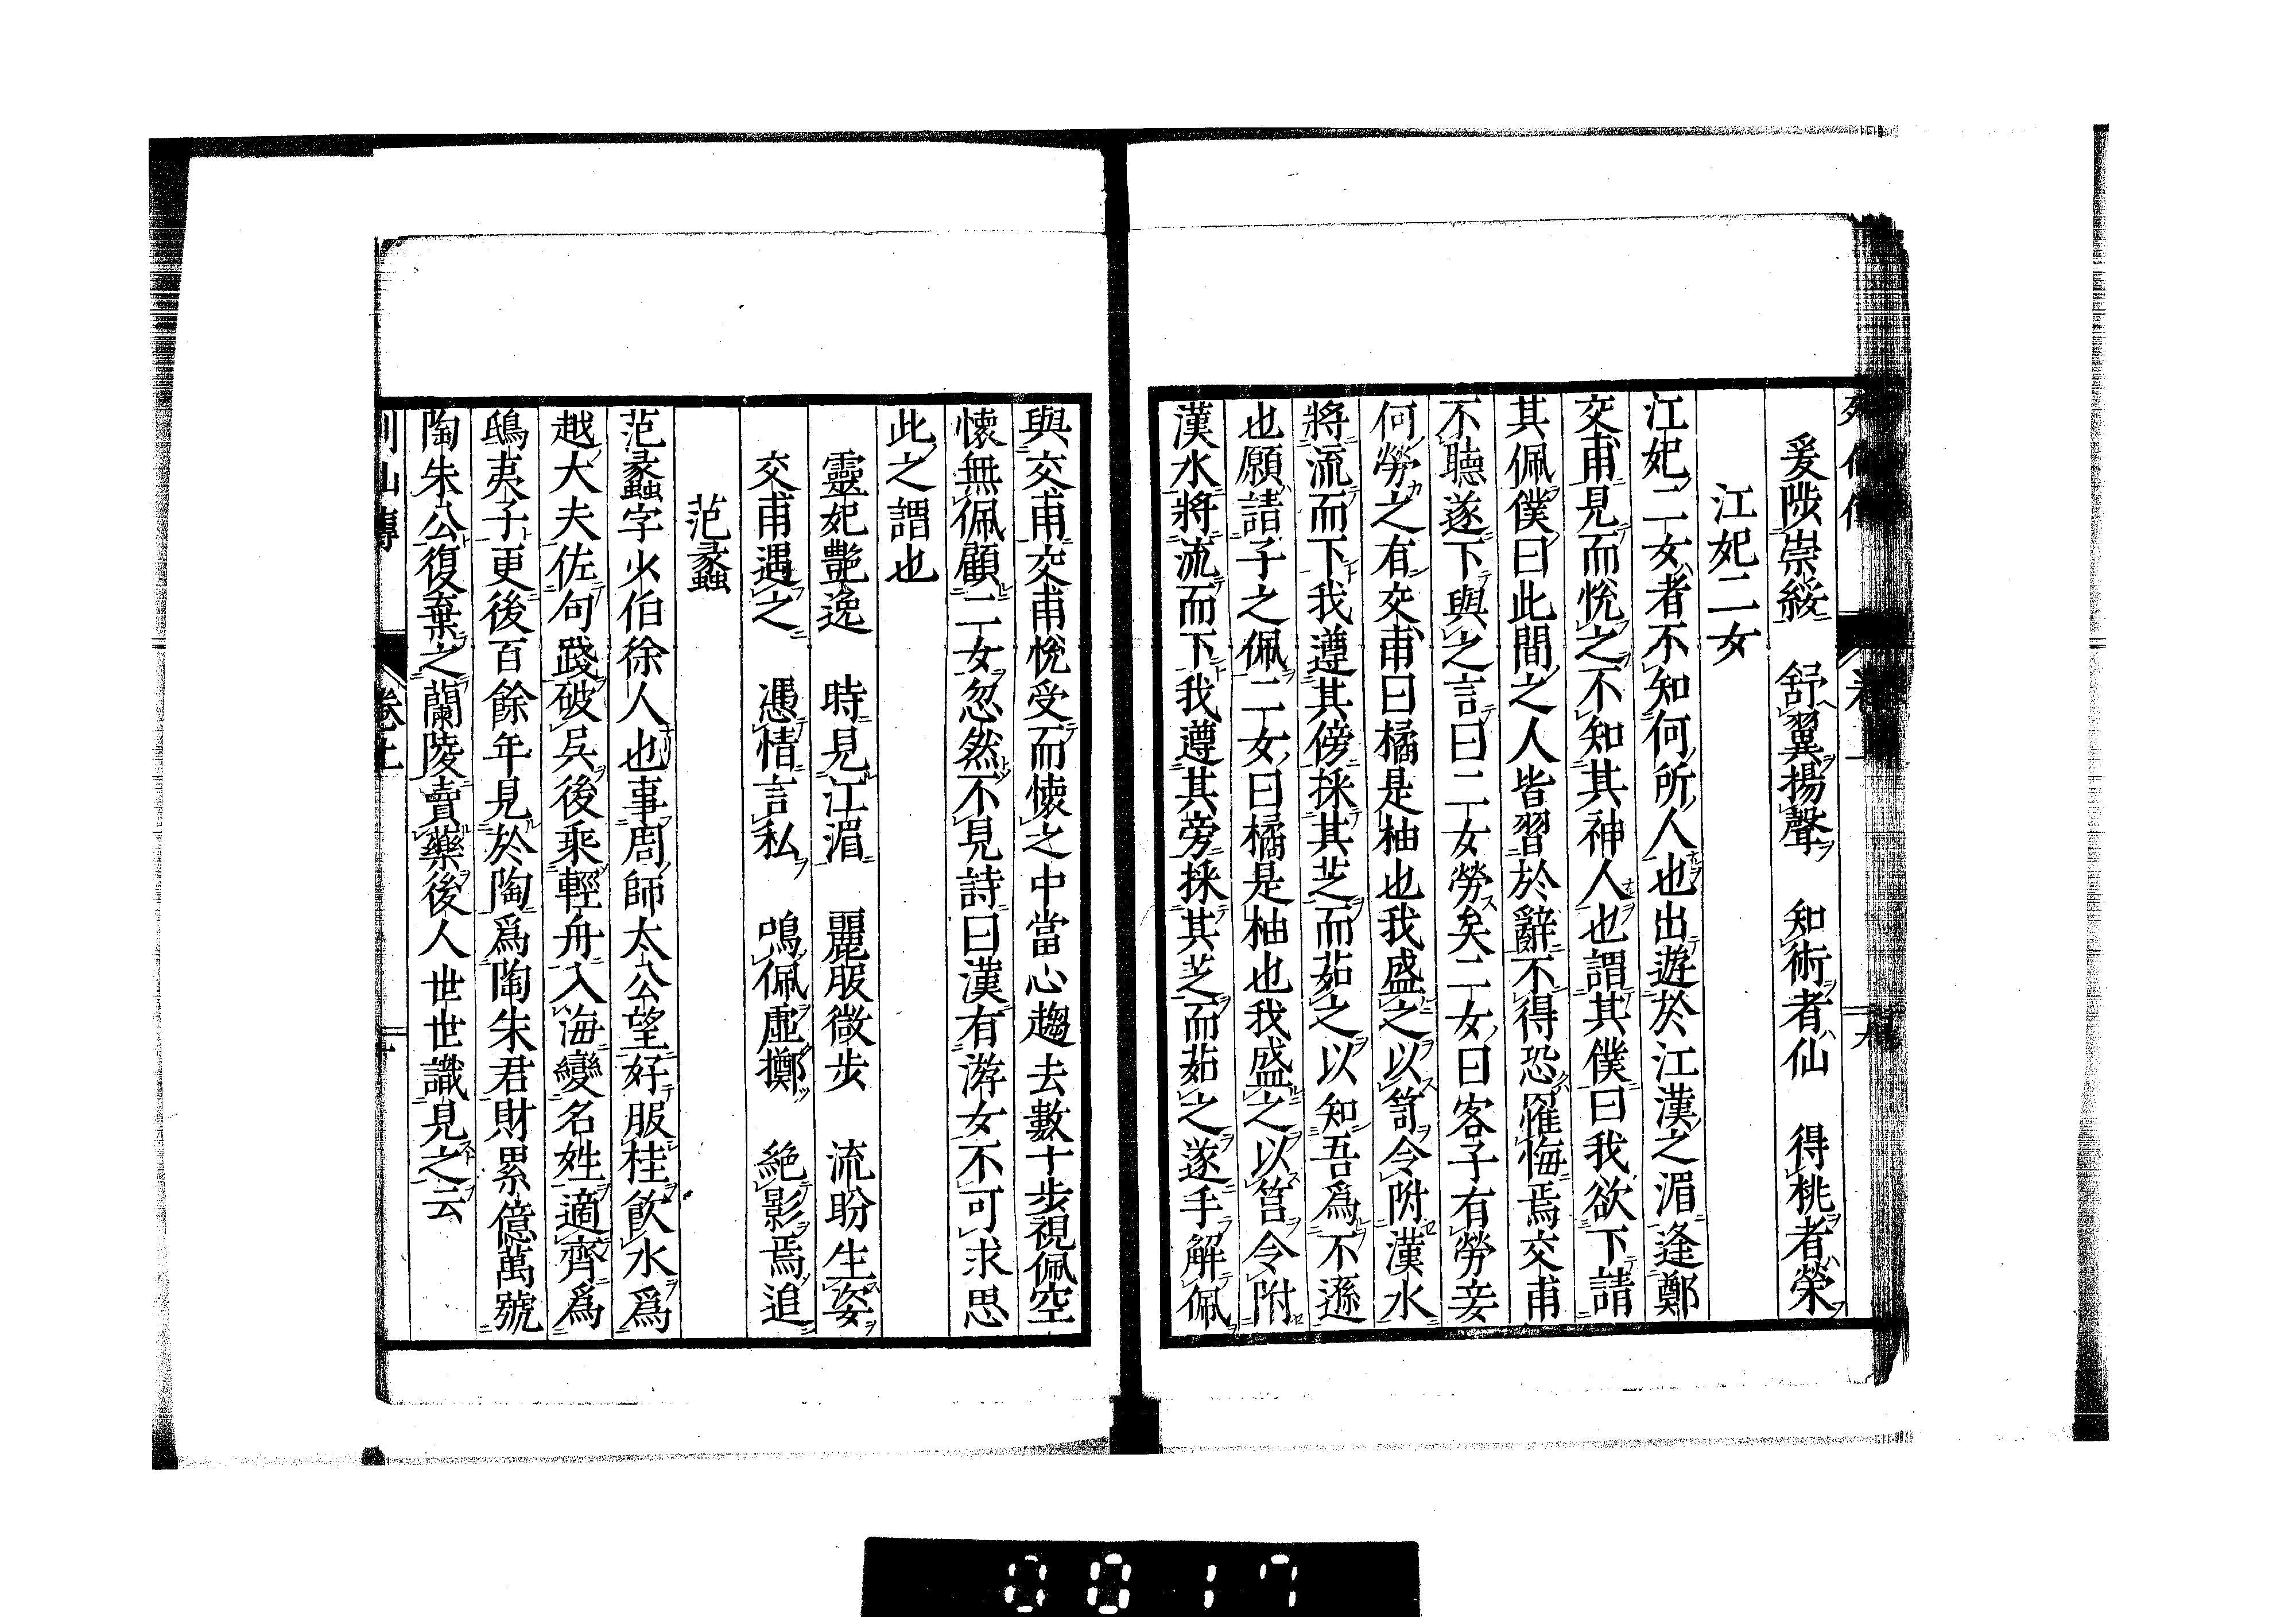 爰陟崇綏　舒翼揚聲　知術者仙　得桃者榮
江妃二女
江妃二女者不知何所人也出遊於江漢之湄逢鄭
交甫見而悅之不知其神人也謂其僕曰我欲下請
其佩僕曰此間之人皆習於辭不得恐罹悔焉交甫
不聽遂下與之言曰二女勞矣二女曰客子有勞妾
何勞之有交甫曰橘是柚也我盛之以笥令附漢水
將流而下我遵其傍採其芝而茹之以知吾爲不遜
也願請子之佩二女曰橘是柚也我盛之以筥令附
漢水將流而下我遵其旁採其芝而茹之遂手解佩
與交甫交甫悅受而懷之中當心趨去數十步視佩空
懷無佩顧二女忽然不見詩曰漢有游女不可求思
此之謂也
靈妃艷逸　時見江湄　麗服微步　流盼生姿
交甫遇之　憑情言私　鳴佩虛擲　絕影焉追
范蠡
范蠡字少伯徐人也事周師太公望好服桂飲水爲
越大夫佐句踐破吳後乘輕舟入海變名姓適齊爲
鴟夷子更後百餘年見於陶爲陶朱君財累億萬號
陶朱公復棄之蘭陵賣藥後人世世識見之云
卷上
0017